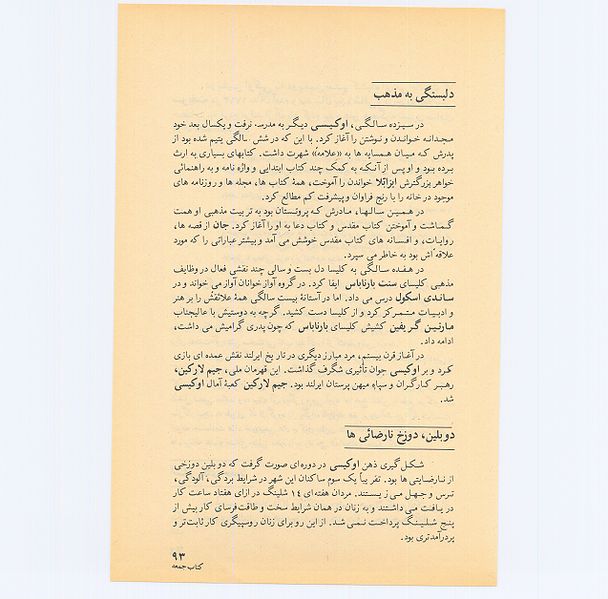 دلبستگی به مذهب
در سیزده سالگی، اوکیسی دیگر به مدرسه نرفت و یکسال بعد خود
مجدانه خواندن و نوشتن را آغاز کرد. با این که در شش سالگی یتیم شده بود از
پدرش که میان همسایه ها به «علامه» شهرت داشت. کتابهای بسیاری به ارث
برده بود و او پس از آنکه به کمک چند کتاب ابتدایی و واژه نامه و به راهنمائی
خواهر بزرگترش ایزابلا خواندن را آموخت، همهٔ کتاب ها، مجله ها و روزنامه های
موجود در خانه را با رنج فراوان و پیشرفت کم مطالع کرد.
در همین سالها، مادرش که پروتستان بود به تربیت مذهبی او همت
گماشت و آموختن کتاب مقدس و کتاب دعا به او را آغاز کرد. جان از قصه ها،
روایات، و افسانه های کتاب مقدس خوشش می آمد و بیشتر عباراتی را که مورد
علاقه‌اش بود به خاطر می سپرد.
در هفده سالگی به کلیسا دل بست و سالی چند نقشی فعال در وظایف
مذهبی کلیسای سنت بارناباس ایفا کرد. در گروه آواز خوانان آواز می خواند و در
ساندی اسکول درس می داد. اما در آستانهٔ بیست سالگی همهٔ علائقش را بر هنر
و ادبیات متمرکز کرد و از کلیسا دست کشید. گرچه به دوستیش با عالیجناب
مارتین گریفین کشیش کلیسای بارناباس که چون پدری گرامیش می داشت،
ادامه داد.
در آغاز قرن بیستم، مرد مبارز دیگری در تاریخ ایرلند نقش عمده ای بازی
کرد و بر اوکیسی جوان تأثیری شگرف گذاشت. این قهرمان ملی، جیم لارکین،
رهبر کارگران و سپاه میهن پرستان ایرلند بود. جیم لارکین کعبهٔ آمال اوکیسی
شد.
دوبلین، دوزخ نارضائی ها
شکل گیری ذهن اوکیسی در دوره ای صورت گرفت که دوبلین دوزخی
از نارضایتی ها بود. تقریباً یک سوم ساکنان این شهر در شرایط بردگی، آلودگی،
ترس و جهل می زیستند. مردان هفته ای ۱۴ شلینگ در ازای هفتاد ساعت کار
دریافت می داشتند و به زنان در همان شرایط سخت و طاقت‌فرسای کار بیش از
پنج شلینگ پرداخت نمی شد. از این رو برای زنان روسپیگری کار ثابت‌تر و
پردرآمدتری بود.
۹۳
کتاب جمعه